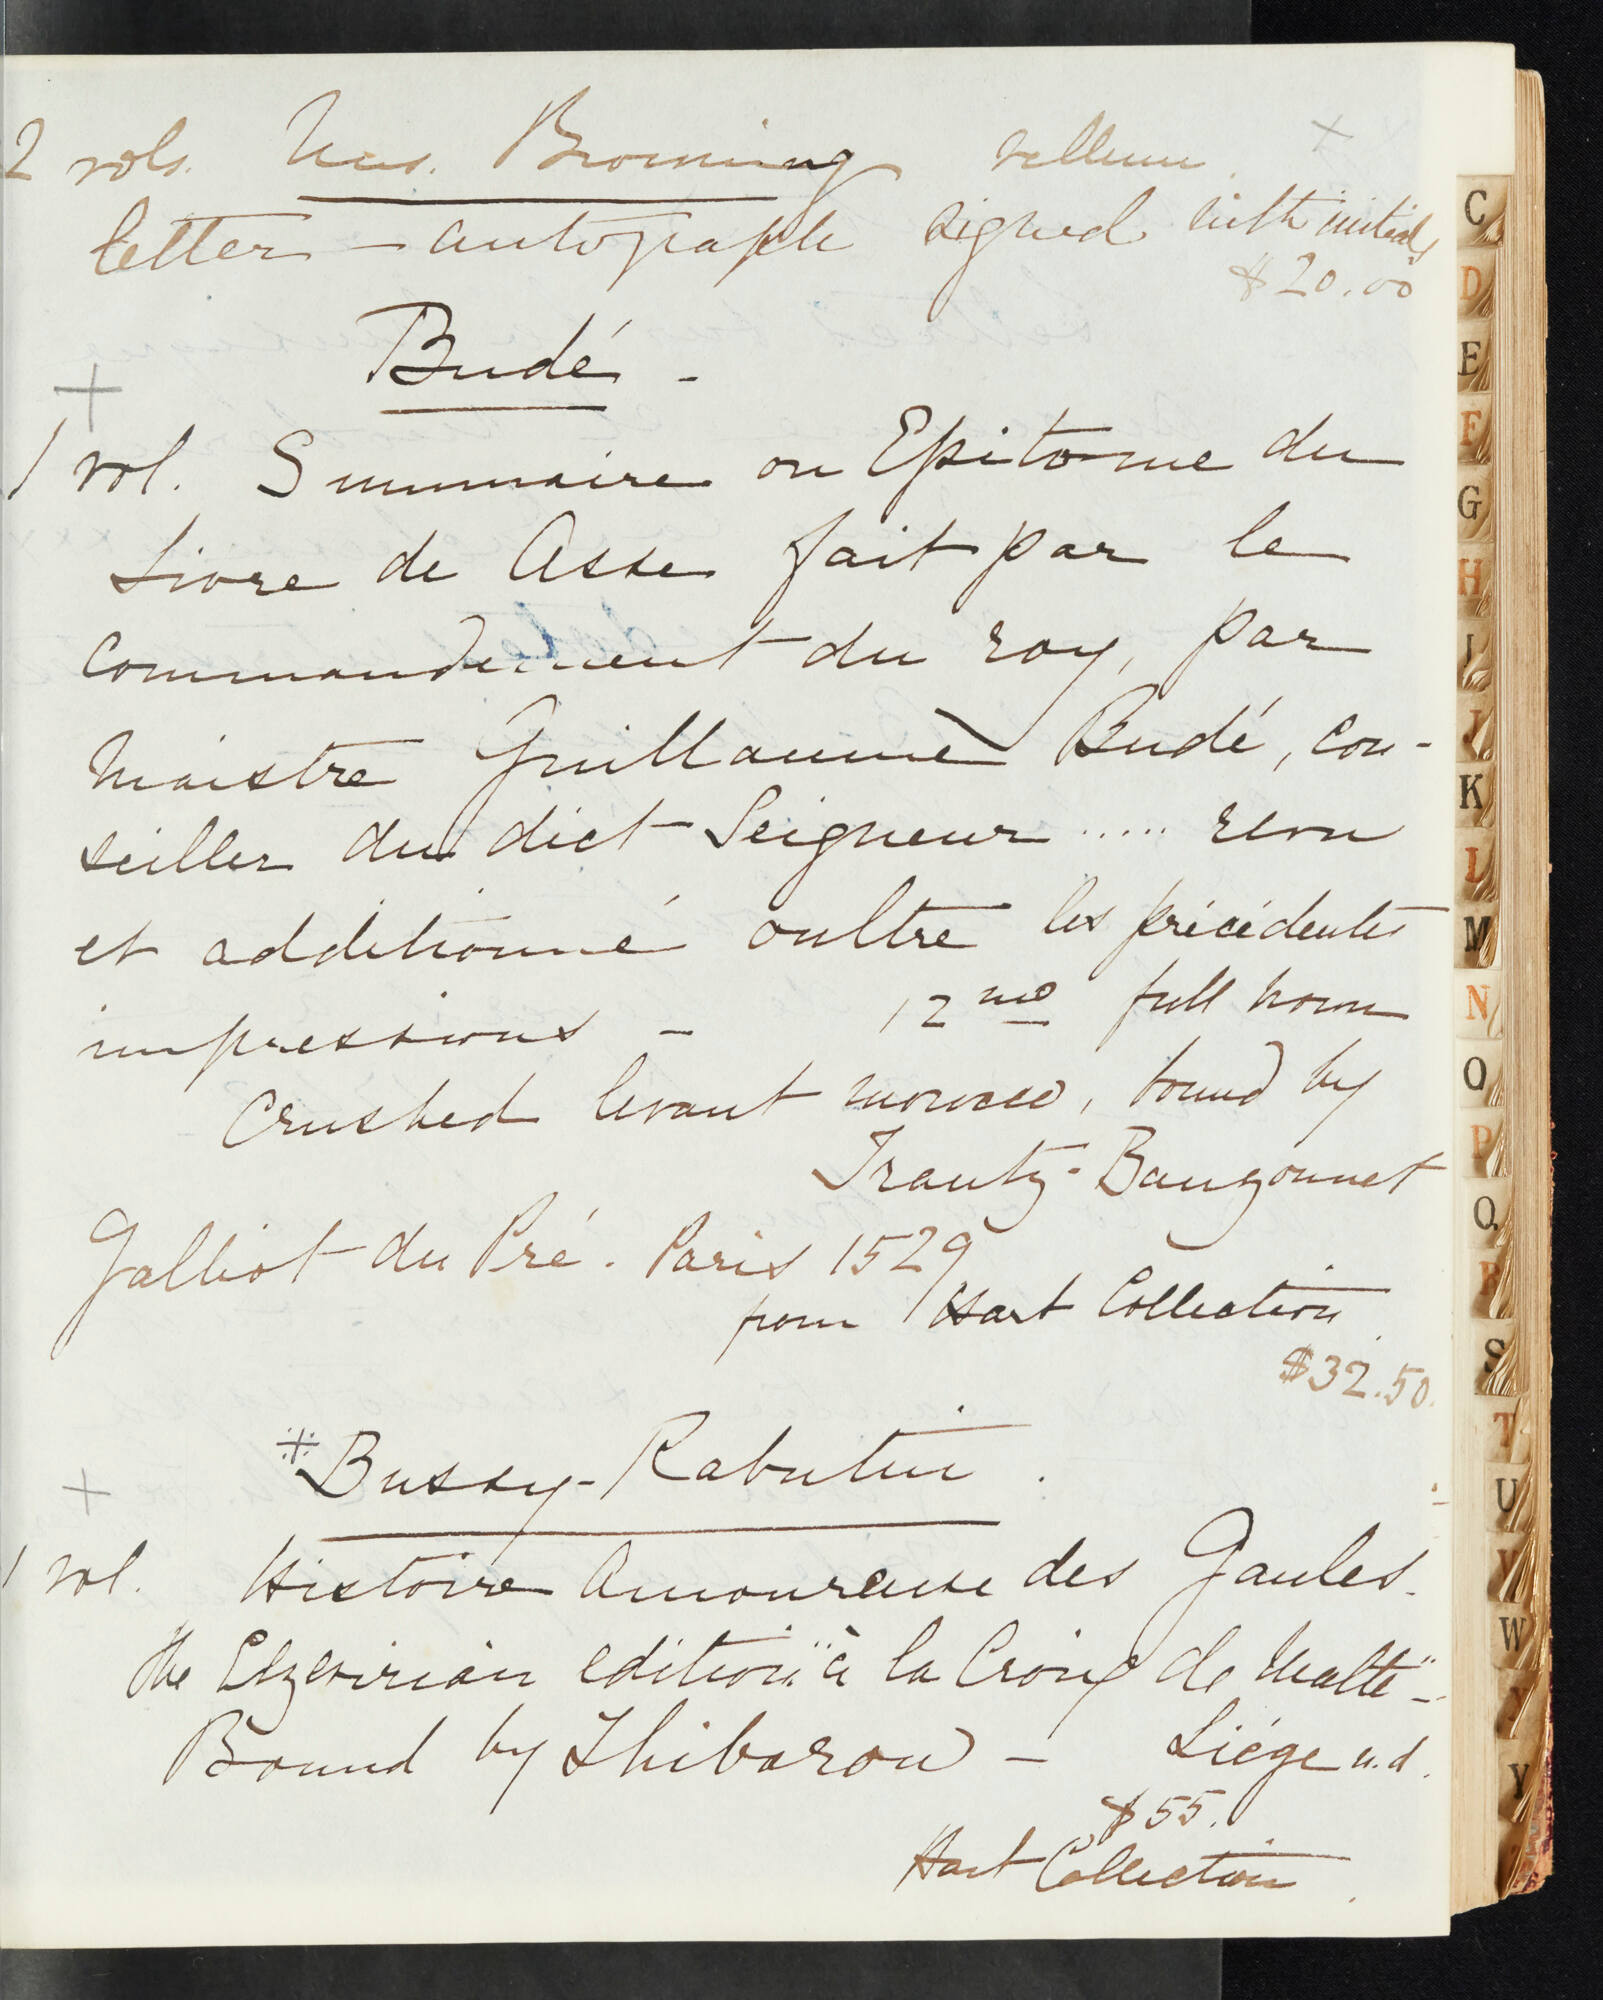 2 vols. Mrs. Browning vellum
letter - autograph signed with initials
$20.00
Budé -
1 vol. Summaire ou Epitome du
Livre de Asse fait par le
commandement du roy, par
maistre Guillaume Budé, con-
seiller du dict Seigneur ..... revu
et additionné oultre les précédentes
impressions - 12mo full brown
crushed levant morocco, bound by
Trautz-Bauzonnet
Galliot du Pré. Paris 1529
from Hart Collection
$32.50.
Bussy-Rabutin.
1 vol. Histoire Amoureuse des Gaules.
the Elzevirian edition "à la Croix de Malte" -
Bound by Thibaron - Liége n.d.
$55.
Hart Collection.
C
D
E
F
G
H
I
J
K
L
M
N
O
P
Q
R
S
T
U
V
W
X
Y